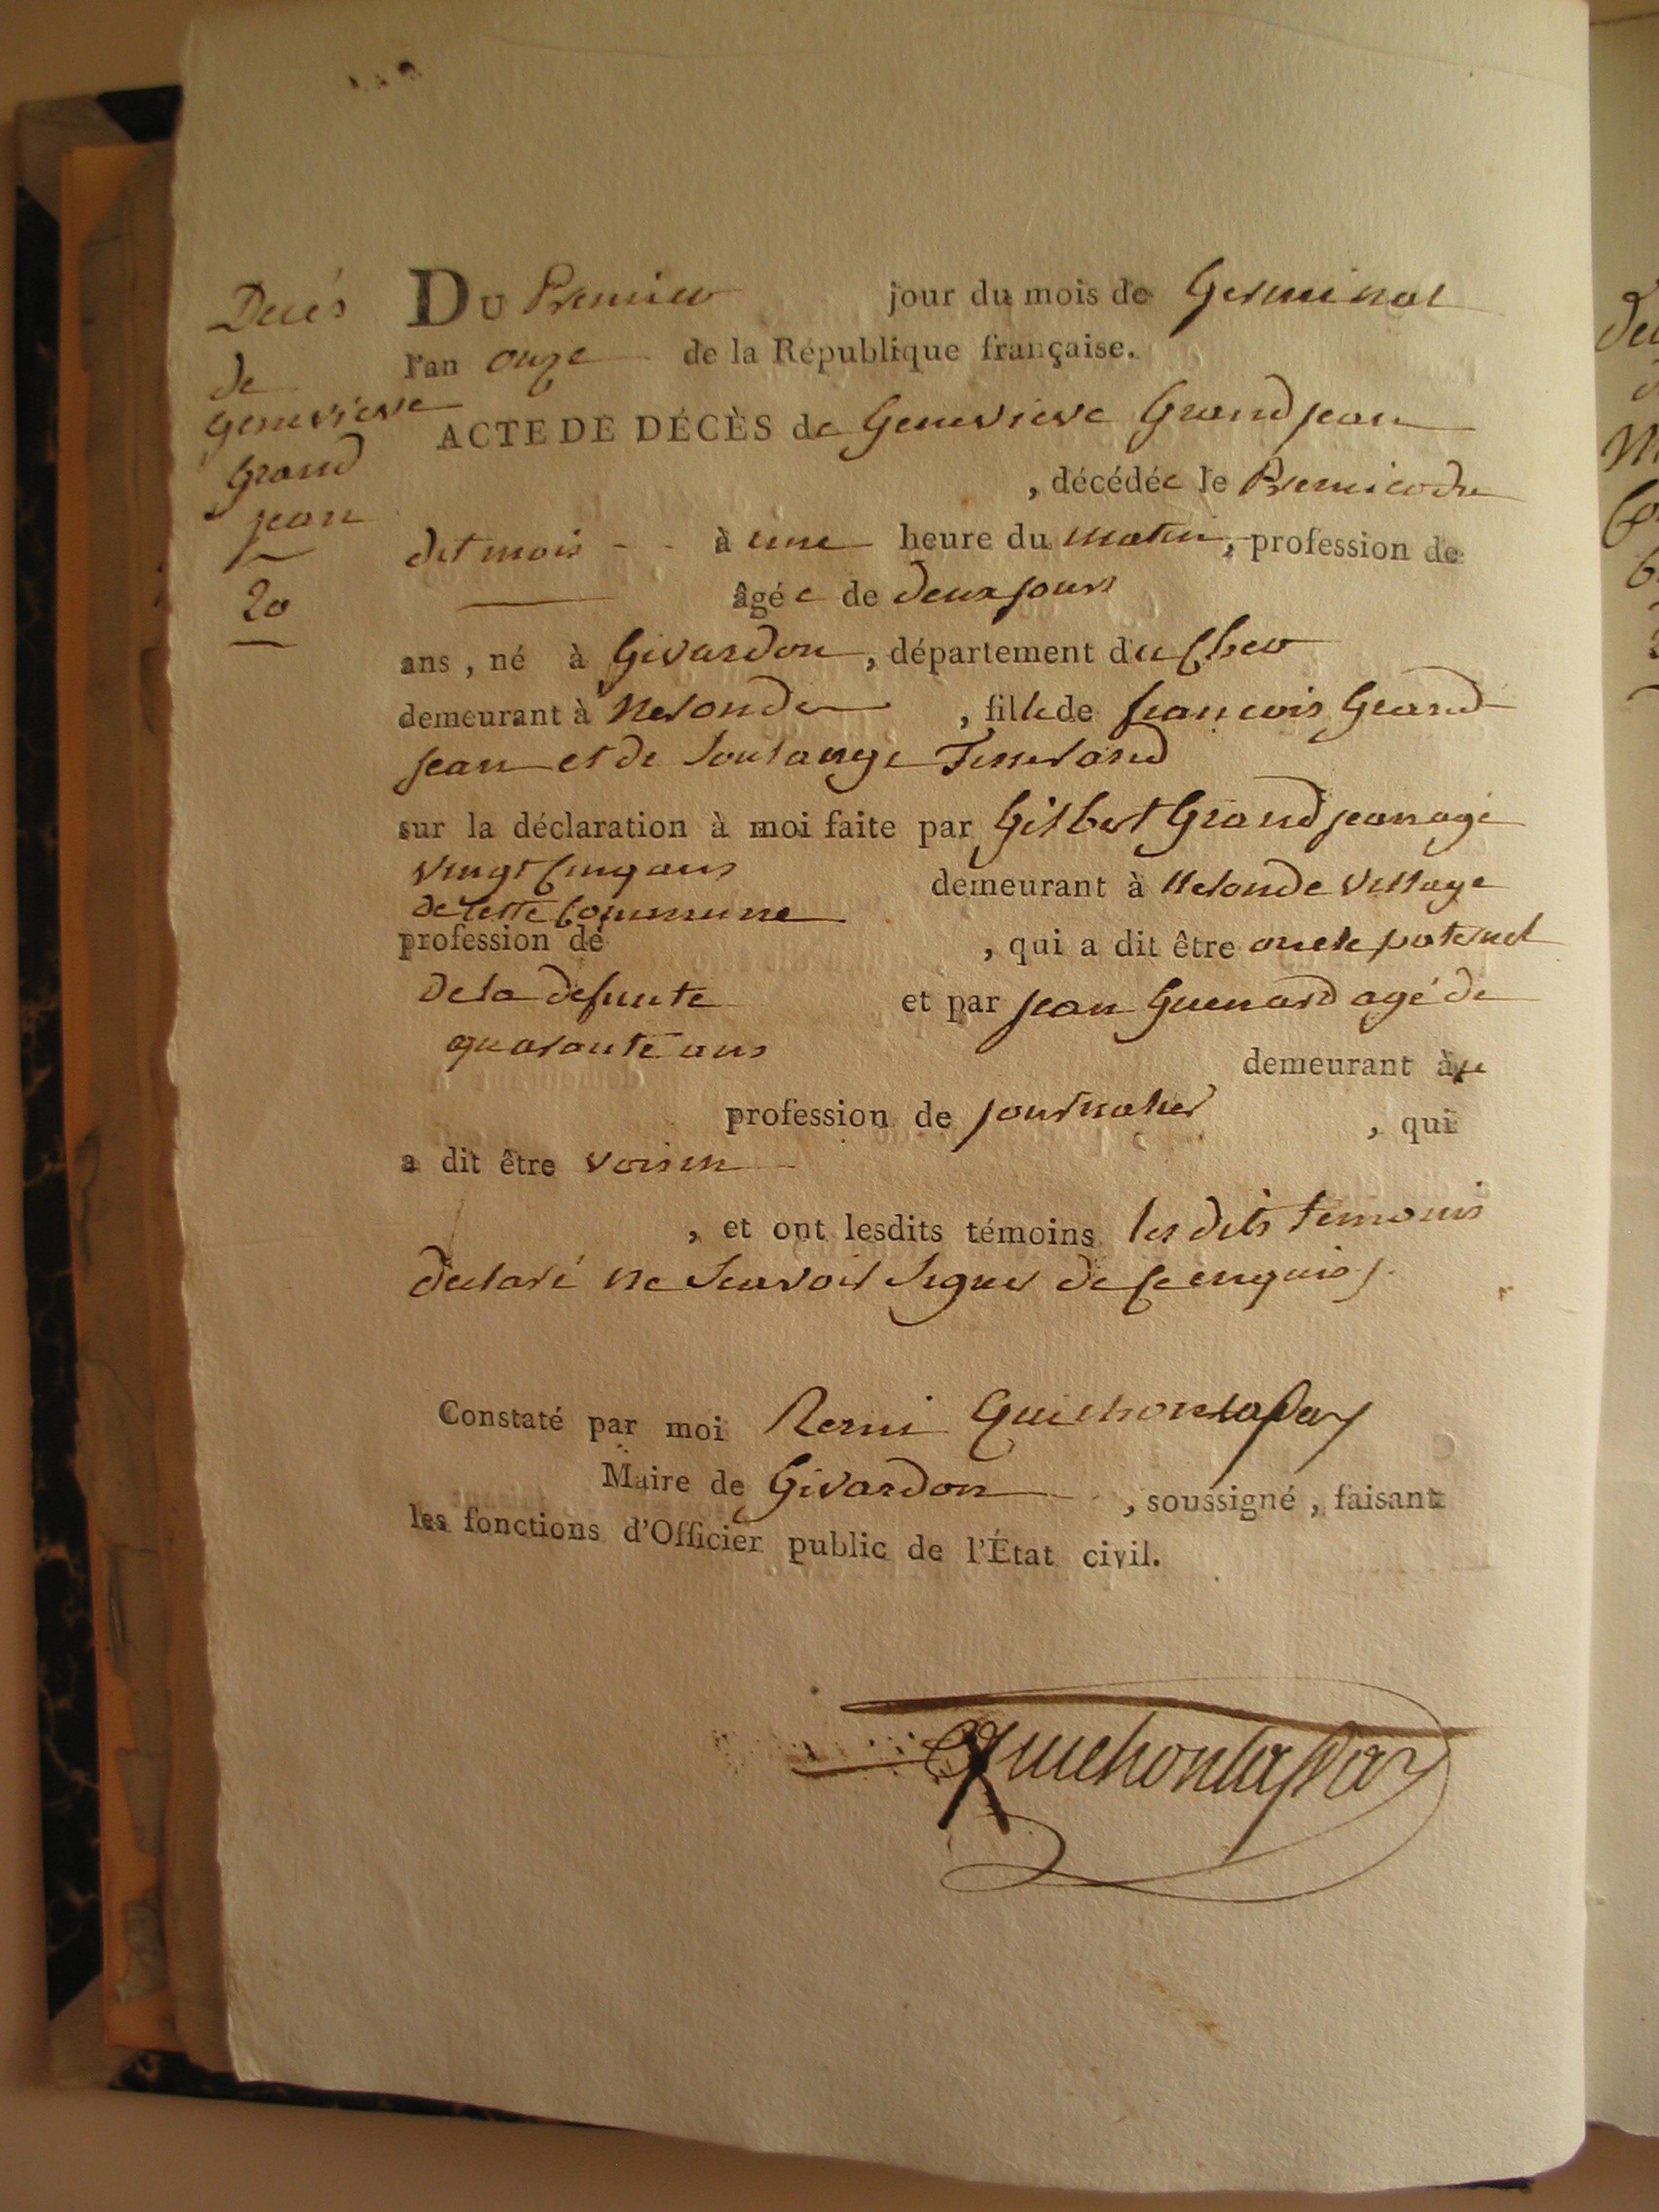 Decés
de
genevieve
Grand
jean
20
DU Premier jour du mois de Germinal
l'an onze de la République française.
ACTE DE DÉCÈS de Genevieve Grand jean
, décédée le Premier du
dit mois - - à une heure du matin, profession de
âgée de deux jours
ans, né à Givardon, département du Cher
demeurant à Nesonde, fille de francois Grand
jean et de Soulange
sur la déclaration à moi faite par Gilbert Grand jean agé
vingt Cinq ans demeurant à Nesonde village
de Cette Commune
profession de , qui a dit être oncle paternel
de la defunte et par jean Guenard agé de
quarante ans
demeurant à
profession de journalier , qui
a dit être voisin -
, et ont lesdits témoins les dits temoins
declaré ne Scavoir Signer de Ce enquis ;.
Constaté par moi Remi Guichonlaspay
Maire de Givardon , soussigné, faisant
les fonctions d'Officier public de l'État civil.